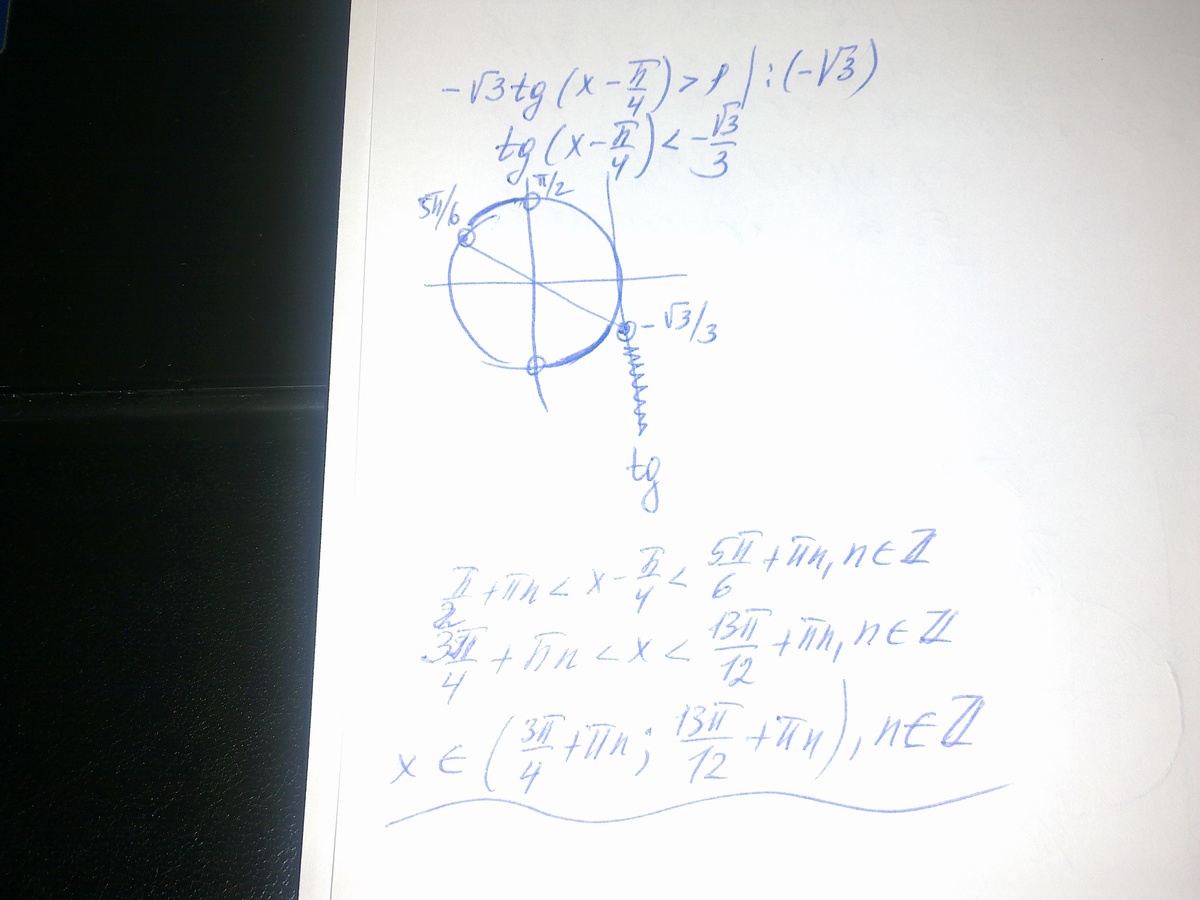 -√3 tg(x - π/4) > 1 | : (-√3)
tg(x - π/4) < -√3/3
π/2
5π/6
-√3/3
tg
π/2 + πn < x - π/4 < 5π/6 + πn, n ∈ ℤ
3π/4 + πn < x < 13π/12 + πn, n ∈ ℤ
x ∈ (3π/4 + πn; 13π/12 + πn), n ∈ ℤ